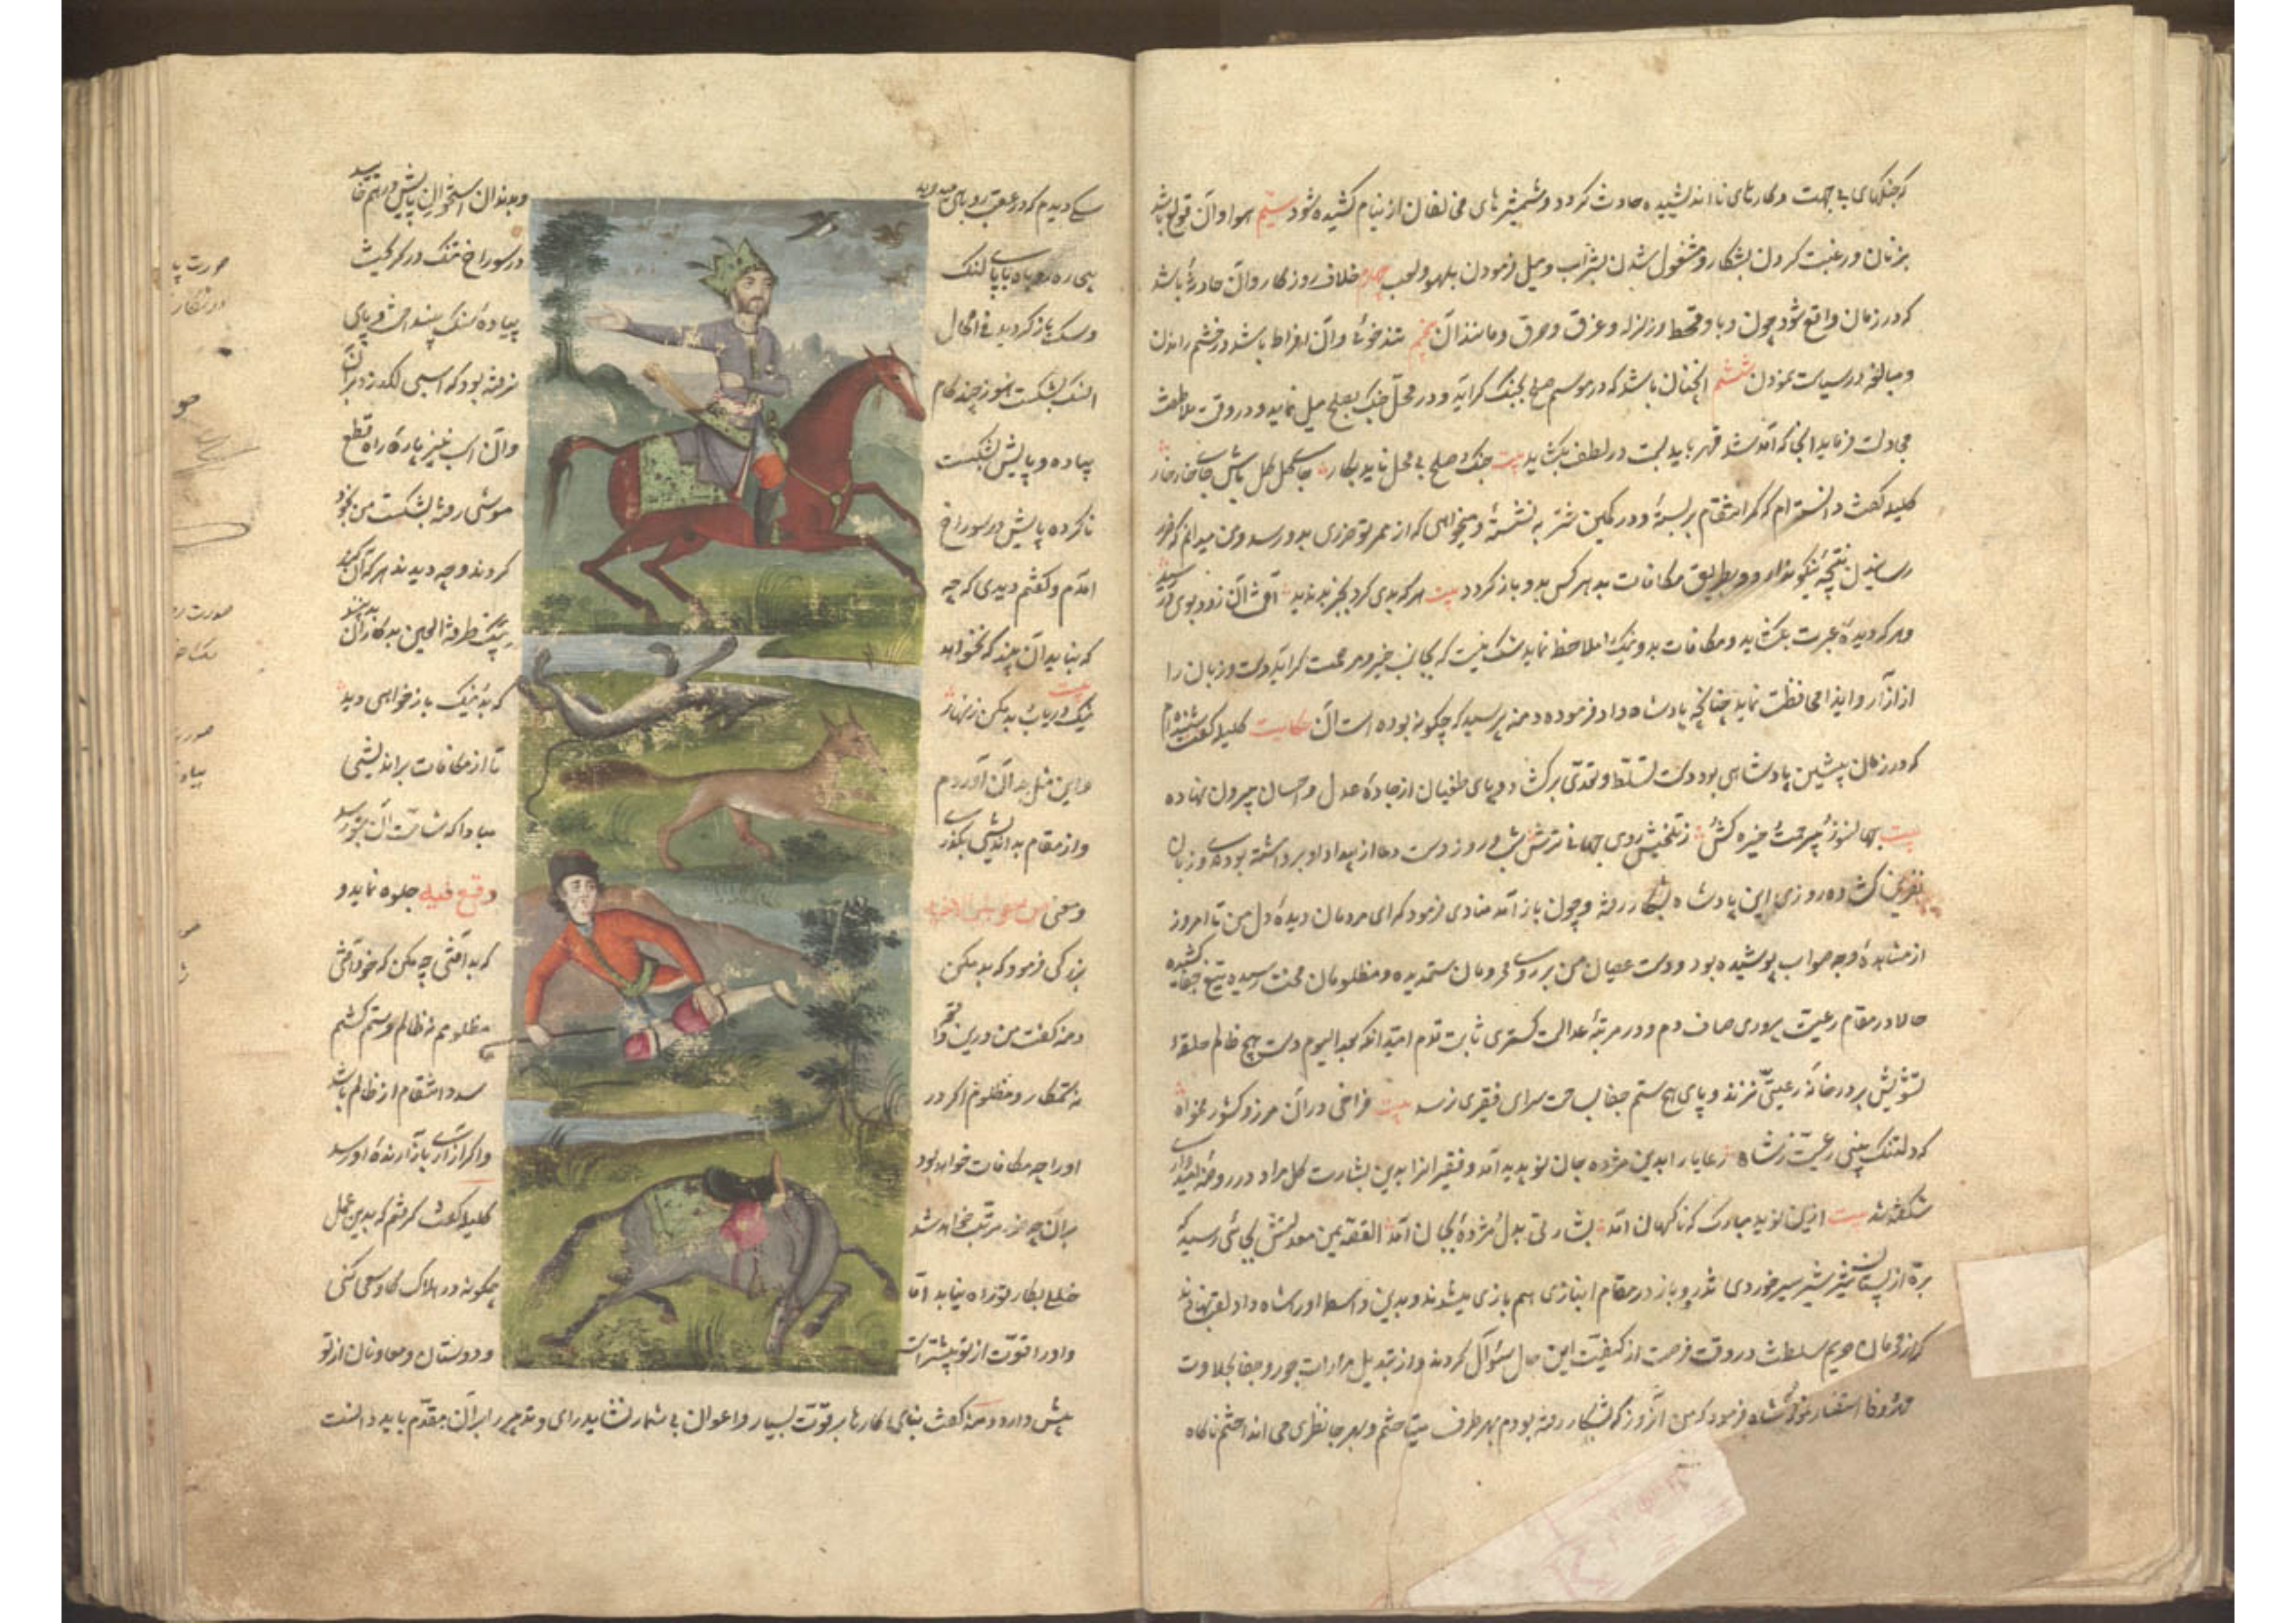 که جنگهای بی جهت و کارهای نااندیشیده حادث گردد و شمشیرهای مخالفان از نیام کشیده شود سیم هوا و آن تولع باشد
بزنان و رغبت کردن بشکار و مشغول شدن بشراب و میل فرمودن بلهو و لعب چهارم خلاف روزگار و آن حادثهٔ باشد
که در زمان واقع شود چون وبا و قحط و زلزله و غرق و حرق و مانند آن پنجم تندخوئی و آن افراط باشد در خشم راندن
و مبالغه در سیاست نمودن ششم آنچنان باشد که در موسم صلح بجنگ گراید و در محل جنگ بصلح میل نماید و در وقت ملاطفت
مجادلت فرماید آنجا که سد قهر باید بست در لطف بگشاید بیت جنگ و صلح بی محل ناید بکار جای گل گل باش جای خار خار
کلیله گفت دانسته ام که کمر انتقام بر بستهٔ و در کمین شنزبه نشستهٔ و میخواهی که از ممر تو ضرری بدو رسد و من میدانم که ضرر
رسانیدن نتیجهٔ نیکو ندارد و بطریق مکافات بد هر کس بدو باز گردد بیت هر که بدی کرد بجز بد ندید آفت آن زود بوی در رسید
و هر که دیدهٔ عبرت بگشاید و مکافات بد و نیک را ملاحظه نماید شک نیست که بجانب خیر و مرحمت گراید و دست و زبان را
از آزار و ایذا محافظت نماید چنانچه پادشاه دادفرموده دمنه پرسید که چگونه بوده است آن حکایت کلیله گفت شنیده ام
که در زمان پیشین پادشاهی بود دست تسلط و تعدی برگشاده و پای طغیان از جادهٔ عدل و احسان بیرون نهاده
بیت جهانسوز بیرحمت خیره کش ز تلخیش روی جهانی ترش شب و روز دست دعا از بیداد او برداشته بودندی و زبان
نفرین گشاده روزی این پادشاه بشکار رفته و چون باز آمد منادی فرمود که ای مردمان دیدهٔ دل من تا امروز
از مشاهدهٔ وجه صواب پوشیده بود و دست عصیان من بر روی محرومان ستمدیده و مظلومان محنت رسیده تیغ جفا کشیده
حالا در مقام رعیت پروری صاف دم و در مرتبهٔ عدالت گستری ثابت قدم امید آنکه بعد الیوم دست هیچ ظالم حلقهٔ
تشویش بر در خانهٔ رعیتی نزند و پای هیچ ستم جفا بساحت سرای فقیری نرسد بیت فراخی در آن مرز و کشور مخواه
که دلتنگ بینی رعیت ز شاه رعایا را بدین مژده جان نو پدید آمد و فقیرانرا بدین بشارت گل مراد در روضهٔ امیدواری
شگفته شد بیت ازین نوید مبارک که ناگهان آمد بشارتی بدل مژدهٔ بجان آمد القصه یمن معدلتش بجائی رسید که
بره از پستان شیر شیر سیر خوردی تذرو و باز در مقام انبازی هم بازی میشدند و بدین واسطه او را شاه داد لقب نهادند
که از محرمان حریم سلطنت در وقت فرصت از کیفیت این حال سؤال کردند و از تبدیل مرارات جور و جفا بحلاوت
مهر و وفا استفسار نمود شاه فرمود که من آنروز که بشکار رفته بودم بهر طرف میتاختم و بهر جا نظری می انداختم ناگاه
سگی دیدم که در عقب روباهی میدوید و بدندان استخوان پایش در هم خایید
روباه با پای لنگ در سوراخ تنگ در گریخت
و سگ باز گردید فی الحال پیاده سنگی بینداخت و پای
آن سگ بشکست هنوز چند گام نرفته بود که اسبی لگد زد بر آن
پیاده و پایش بشکست و آن اسب نیز پارهٔ راه قطع
ناکرده پایش در سوراخ موشی رفته بشکست من بخود
آمدم و گفتم دیدی که چه کردند و چه دیدند هر که آن کند
که نباید آن بیند که نخواهد
بیت
نیک دریاب بد مکن زنهار که بد و نیک باز خواهی دید
و این مثل بدان آوردم تا از مکافات براندیشی
و از مقام بداندیشی بگذر مبادا که شامت آن بتو رسد
و معنی من حفر بئرا لاخیه وقع فیه جلوه نماید و
بزرگی فرمود که بد مکن که بد افتی چه مکن که خود افتی
دمنه گفت من درین واقعه مظلومم نه ظالم و ستم کشم
نه ستمکار و مظلوم اگر در صدد انتقام از ظالم باشد
او را چه مکافات خواهد بود و اگر آزاری بآزارندهٔ او رسد
بر آن چه ضرر مرتب خواهد شد کلیله گفت گرفتم که بدین عمل
خللی بکار تو راه نیابد اما چگونه در هلاک گاو سعی کنی
و او را قوت از تو بیشتر است و دوستان و معاونان از تو
بیش دارد دمنه گفت بنای کارها بر قوت بسیار و اعوان بی شمار نشاید رای و تدبیر را بر آن مقدم باید دانست
صورت
صورت
صورت